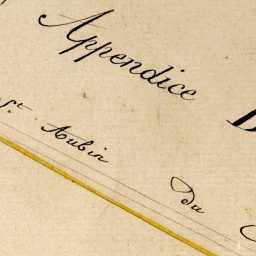 Appendice
St. Aubin Du